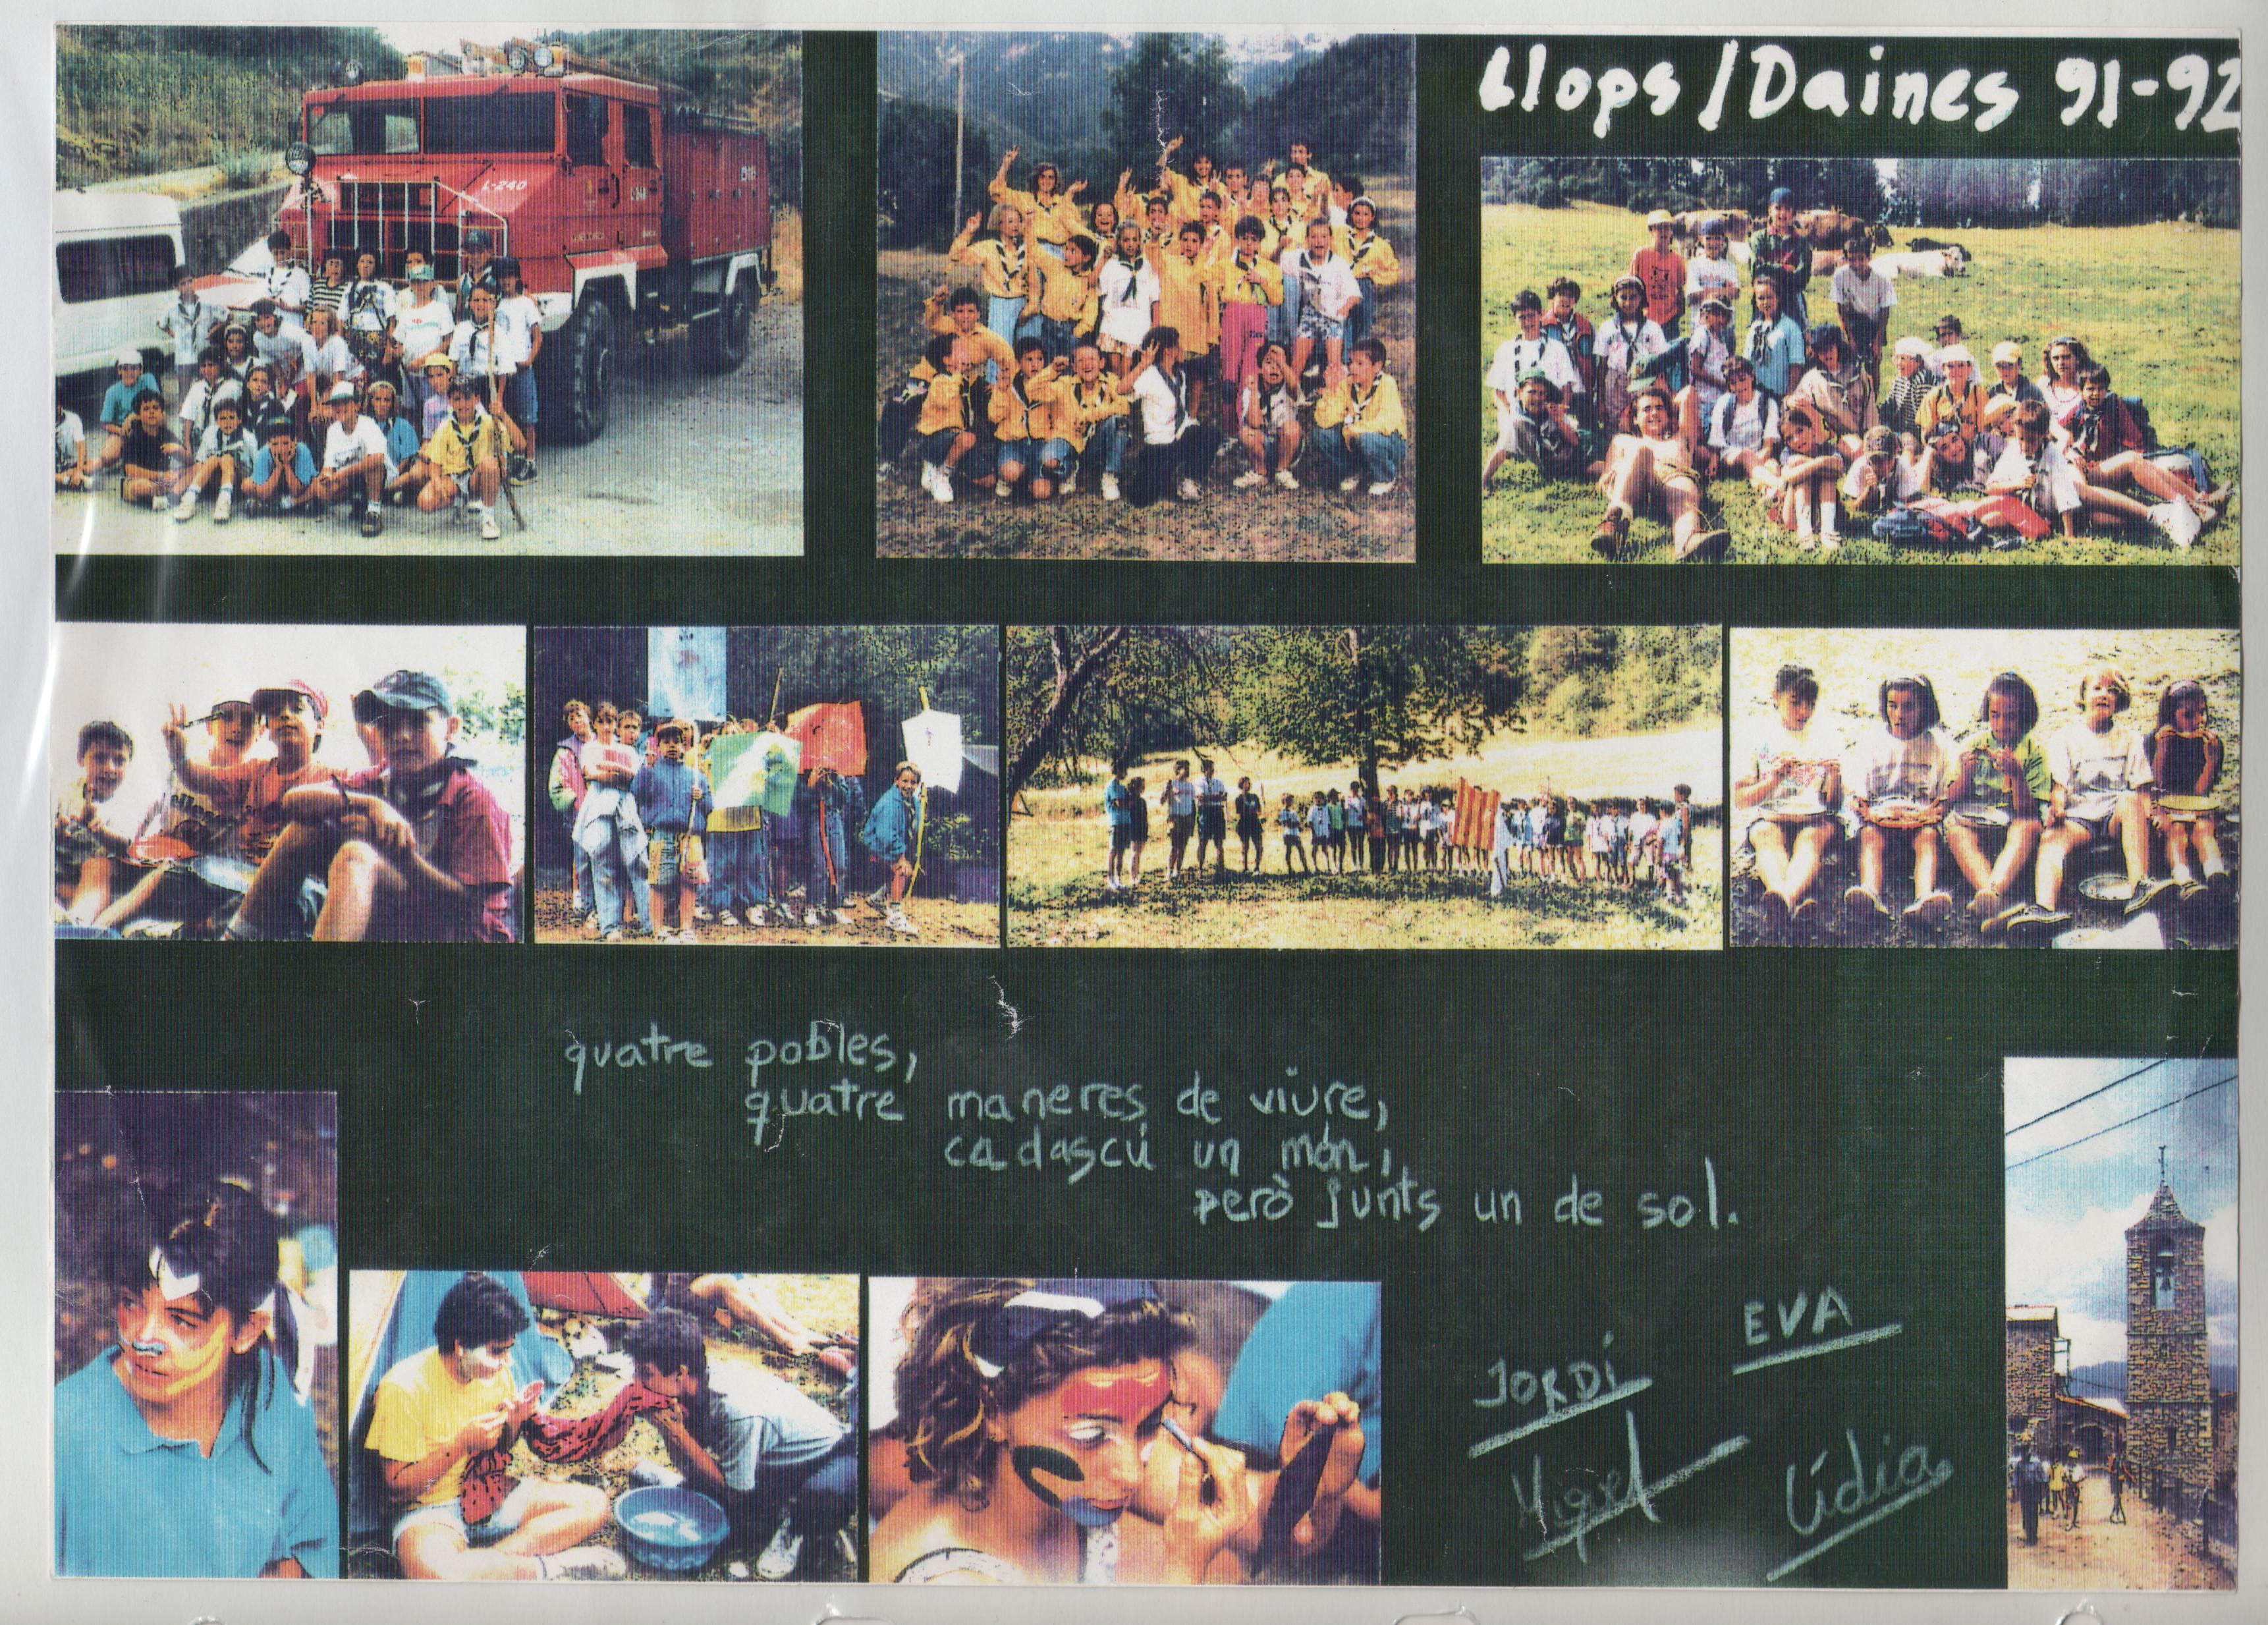 Llops / Daines 91-92
L-240
quatre pobles,
quatre maneres de viure,
cadascú un món,
però junts un de sol.
EVA
JORDI
Miquel
Lídia